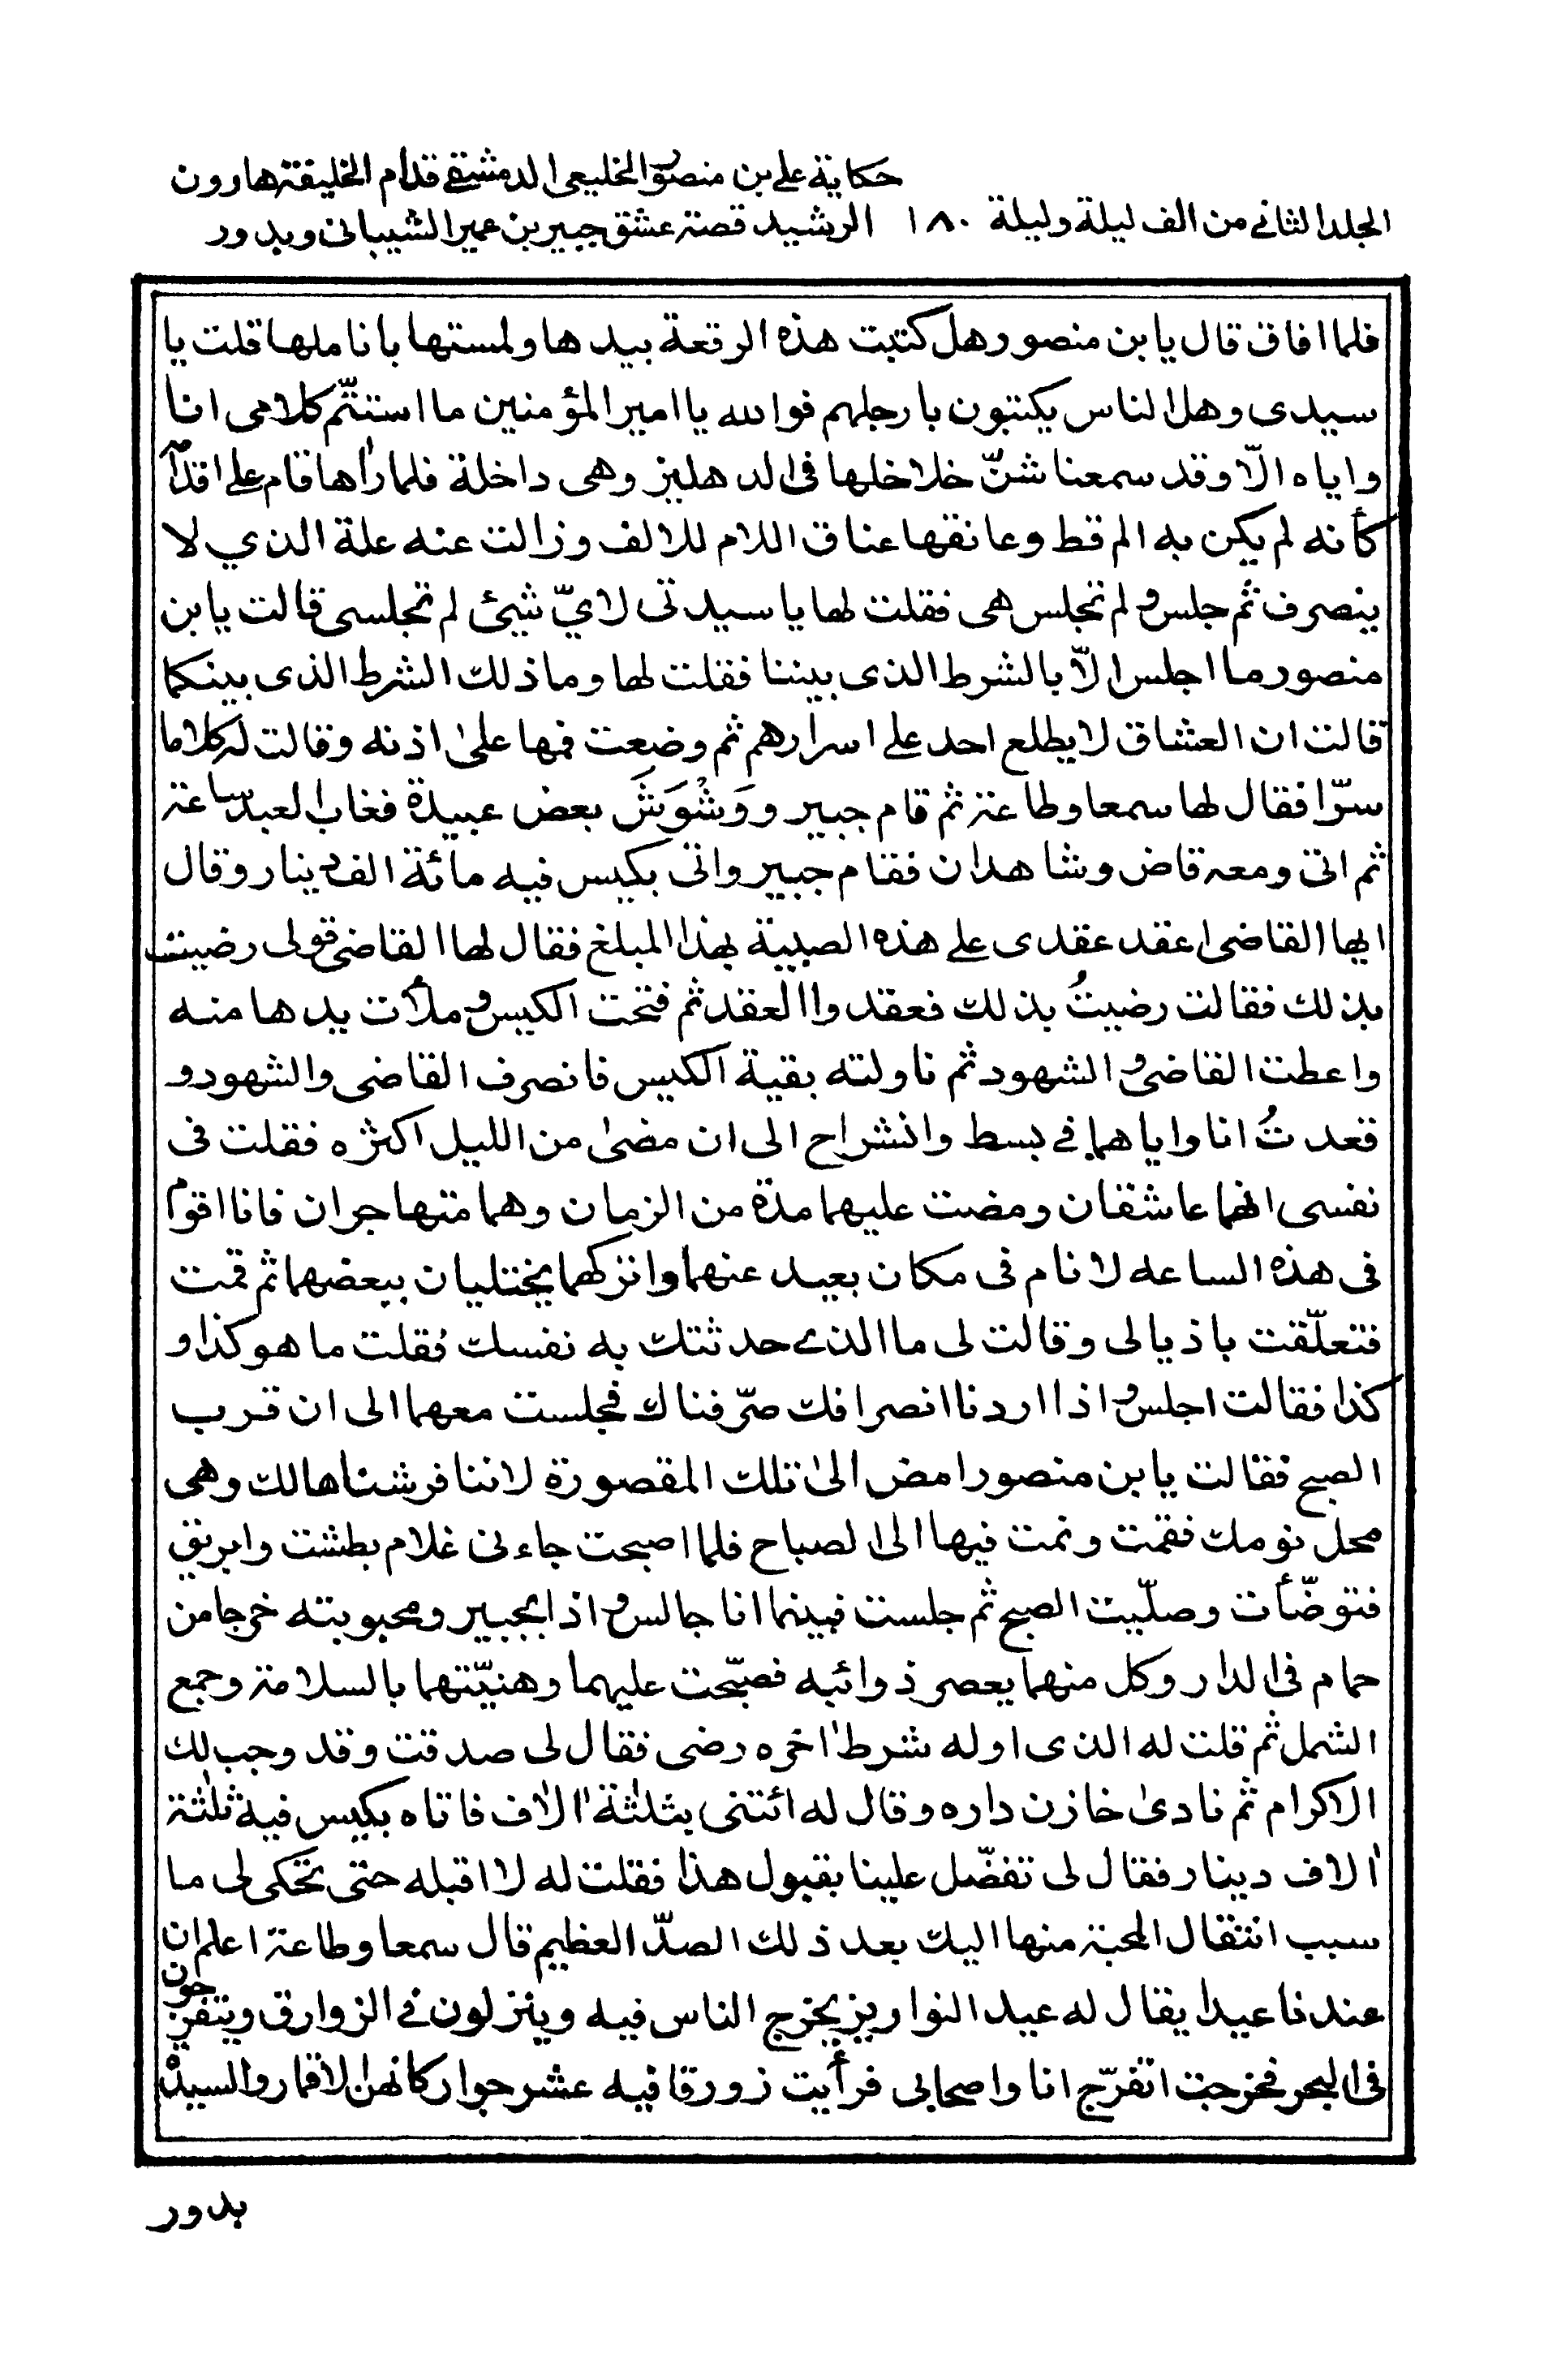 حكاية على بن منصور الخليعى الدمشقى قدام الخليفة هارون
المجلد الثانى من الف ليلة وليلة ١٨٠ الرشيد قصة عشق جبير بن عمير الشيبانى وبدور
فلما افاق قال يا بن منصور هل كتبت هذه الرقعة بيدها ولمستها باناملها قلت يا
سيدى وهل الناس يكتبون بارجلهم فوالله يا امير المؤمنين ما استتمّ كلامى انا
واياه الّا وقد سمعنا شنّ خلاخلها فى الدهليز وهى داخلة فلما رأها قام على اقدامه
كأنه لم يكن به الم قط وعانقها عناق اللام للالف وزالت عنه علة الذي لا
ينصرف ثم جلس و لم تجلس هى فقلت لها يا سيدتى لايّ شيئ لم تجلسى قالت يا بن
منصور ما اجلس الّا بالشرط الذى بيننا فقلت لها وما ذلك الشرط الذى بينكما
قالت ان العشاق لا يطلع احد على اسرارهم ثم وضعت فمها على اذنه وقالت له كلاما
سرّا فقال لها سمعا وطاعة ثم قام جبير ووَشْوَشَ بعض عبيدة فغاب العبد ساعة
ثم اتى ومعه قاض وشاهدان فقام جبير واتى بكيس فيه مائة الف دينار وقال
ايها القاضى اعقد عقدى على هذه الصبية بهذا المبلغ فقال لها القاضى قولى رضيت
بذلك فقالت رضيتُ بذلك فعقدوا العقد ثم فتحت الكيس و ملأت يدها منه
واعطت القاضى و الشهود ثم ناولته بقية الكيس فانصرف القاضى والشهود و
قعدتُ انا واياهما فى بسط وانشراح الى ان مضى من الليل اكثره فقلت فى
نفسى انهما عاشقان ومضت عليهما مدة من الزمان وهما متهاجران فانا اقوم
فى هذه الساعه لانام فى مكان بعيد عنهما واتركهما يختليان ببعضهما ثم قمت
فتعلّقت باذيالى وقالت لى ما الذى حدثتك به نفسك فقلت ما هو كذا و
كذا فقالت اجلس و اذا اردنا انصرافك صرّفناك فجلست معهما الى ان قرب
الصبح فقالت يا بن منصور امض الى تلك المقصورة لاننا فرشناها لك وهى
محل نومك فقمت ونمت فيها الى الصباح فلما اصبحت جاءنى غلام بطشت وابريق
فتوضّأت وصلّيت الصبح ثم جلست فبينما انا جالس و اذا بجبير ومحبوبته خرجا من
حمام فى الدار وكل منهما يعصر ذوائبه فصبّحت عليهما وهنيّتهما بالسلامة وجمع
الشمل ثم قلت له الذى اوله شرط اخره رضى فقال لى صدقت وقد وجب لك
الاكرام ثم نادى خازن داره وقال له ائتنى بثلثة الاف فاتاه بكيس فيه ثلثة
الاف دينار فقال لى تفضّل علينا بقبول هذا فقلت له لا اقبله حتى تحكى لى ما
سبب انتقال المحبة منها اليك بعد ذلك الصدّ العظيم قال سمعا وطاعة اعلم ان
عندنا عيدا يقال له عيد النواريز يخرج الناس فيه وينزلون فى الزوارق ويتفرجون
فى البحر فخرجت اتفرّج انا واصحابى فرأيت زورقا فيه عشر جوار كانهن الاقمار والسيدة
بدور